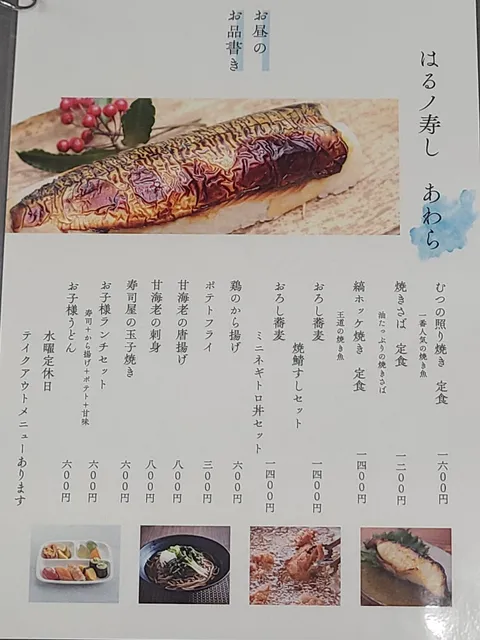 お昼の
お品書き
はるノ寿し　あわら
むつの照り焼き　定食　一六〇〇円
一番人気の焼き魚
焼きさば　定食　一二〇〇円
油たっぷりの焼きさば
縞ホッケ焼き　定食　一四〇〇円
王道の焼き魚
おろし蕎麦　焼鯖すしセット　一四〇〇円
おろし蕎麦　ミニネギトロ丼セット　一四〇〇円
鶏のから揚げ　六〇〇円
ポテトフライ　三〇〇円
甘海老の唐揚げ　八〇〇円
甘海老の刺身　八〇〇円
寿司屋の玉子焼き　六〇〇円
お子様ランチセット　六〇〇円
寿司＋から揚げ＋ポテト＋甘味
お子様うどん　六〇〇円
水曜定休日
テイクアウトメニューあります